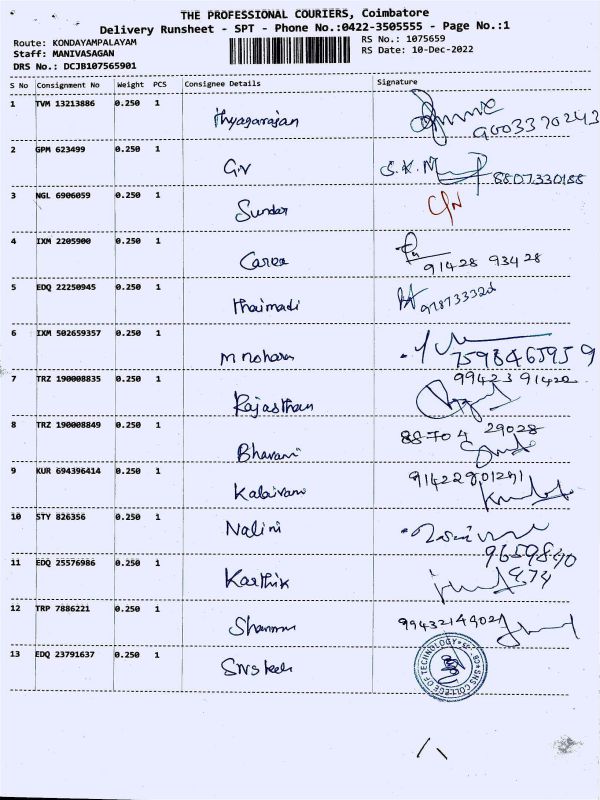 THE PROFESSIONAL COURIERS, Coimbatore
Delivery Runsheet - SPT - Phone No.:0422-3505555 - Page No.:1
Route: KONDAYAMPALAYAM
Staff: MANIVASAGAN
DRS No.: DCJB107565901
RS No.: 1075659
RS Date: 10-Dec-2022
S No Consignment No Weight PCS Consignee Details Signature
1 TVM 13213886 0.250 1 Thyagarajan
9003370243
2 GPM 623499 0.250 1 G.V S.K.M 8807330188
3 NGL 6906059 0.250 1 Sundar
4 IXM 2205900 0.250 1 Carea
91428 93428
5 EDQ 22250945 0.250 1 Thaimadi
6 IXM 502659357 0.250 1 M nohara
7598465959
7 TRZ 190008835 0.250 1 Rajasthan 99423 91422
8 TRZ 190008849 0.250 1 Bhavani 88704 29028
9 KUR 694396414 0.250 1 Kalaivani
10 STY 826356 0.250 1 Nalini
11 EDQ 25576986 0.250 1 Karthik
9659840
474
12 TRP 7886221 0.250 1 Shanmu 9943214902
13 EDQ 23791637 0.250 1 SNS tech
SNS COLLEGE OF TECHNOLOGY